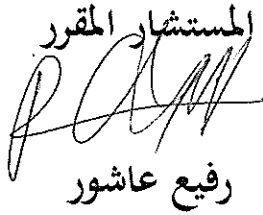 المستشار المقرر
رفيع عاشور